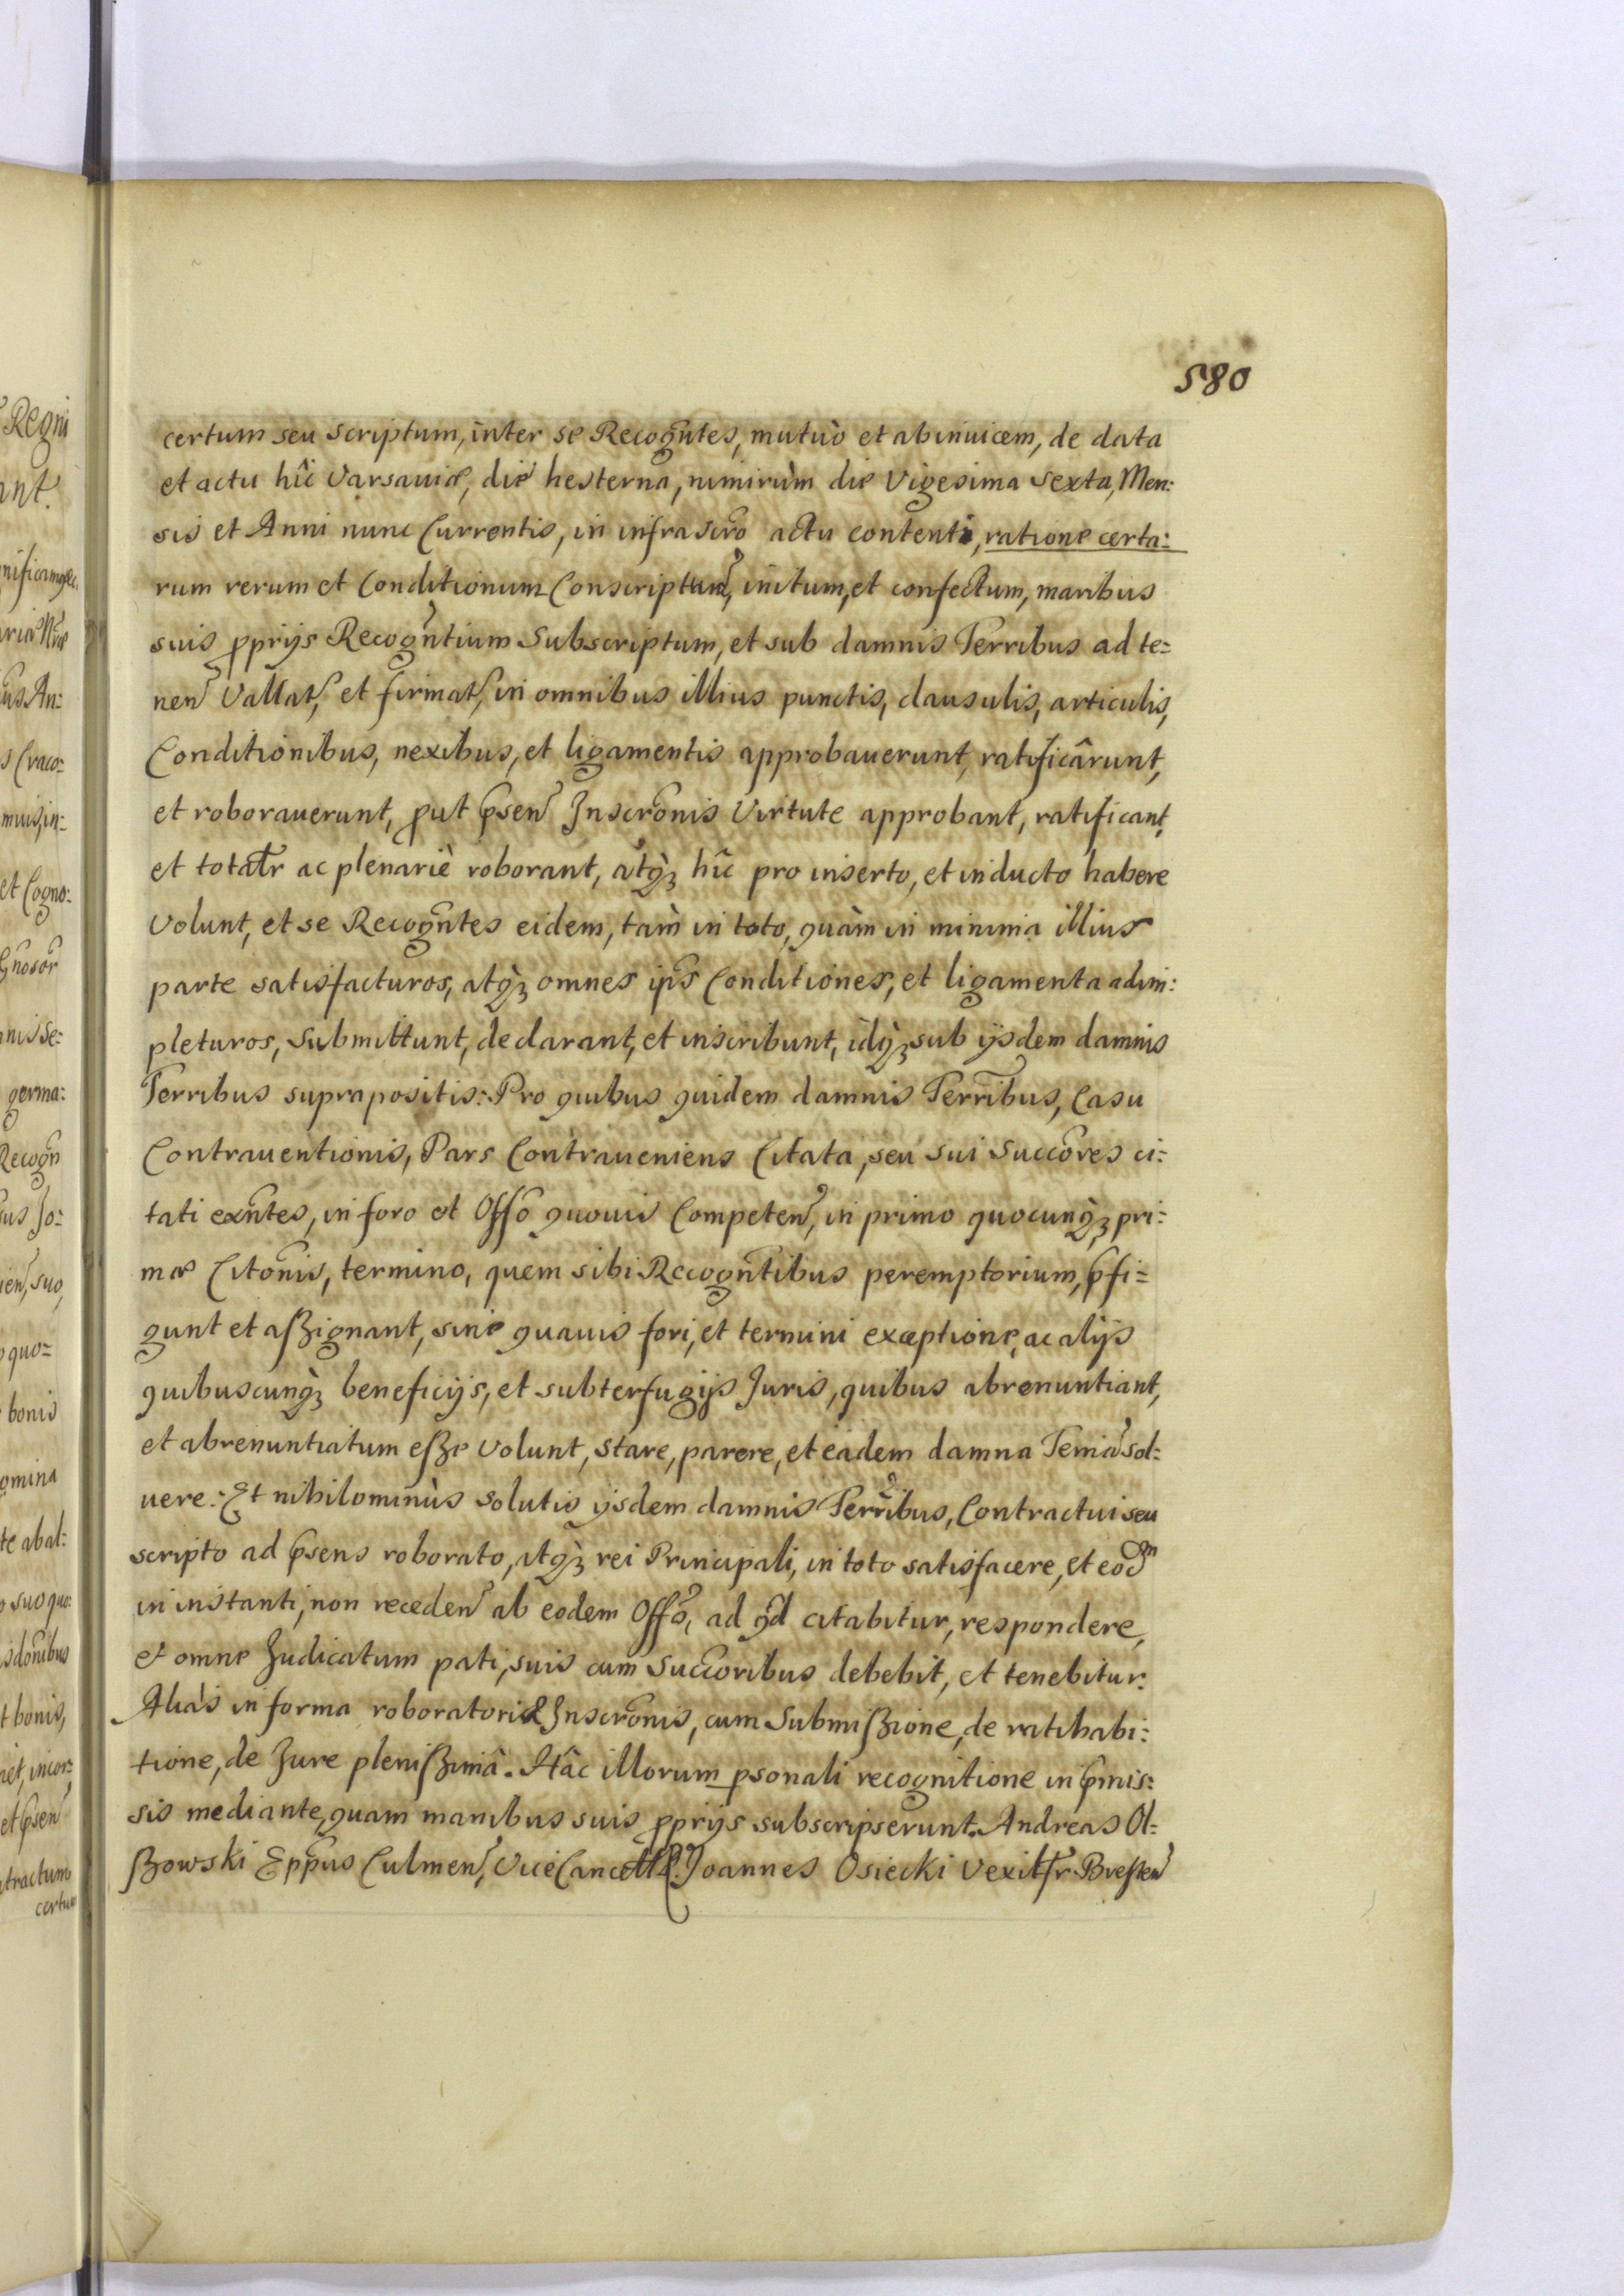 580
certum seu scriptum, inter se Recogñtes, mutuò et abinuicem, de data
et actu hîc Varsauiæ, die hesterna, nimirùm die Vigesima Sexta, Men:
sis et Anni nunc Currentis, in infrascro actu contenti, ratione certa:
rum rerum et Conditionum Conscriptum, initum, et confectum, manibus
suis pprijs Recogñtium Subscriptum, et sub damnis Terribus ad te=
neñ Vallat, et firmat, in omnibus illius punctis, clausulis, articulis,
Conditionibus, nexibus, et ligamentis approbauerunt, ratificârunt,
et roborauerunt, put pseñ Inscrõnis Virtute approbant, ratificant,
et totalr ac plenariè roborant, atq3 hîc pro inserto, et inducto habere
Volunt, et se Recogñtes eidem, tàm in toto, quàm in minima illius
parte satisfacturos, atq3 omnes ips Conditiones, et ligamenta adim:
pleturos, submittunt, declarant, et inscribunt, idq3 sub ijsdem damnis
Terribus suprapositis: Pro quibus quidem damnis Terribus, Casu
Contrauentionis, Pars Contraueniens Citata, seu sui Succõres ci:
tati exñtes, in foro et Offõ quouis Competeñ, in primo quocunq3 pri:
mæ Citõnis, termino, quem sibi Recogñtibus peremptorium, pfi=
gunt et aßignant, sine quauis fori, et termini exceptione, ac alijs
quibuscunq3 beneficijs, et subterfugijs Juris, quibus abrenuntiant,
et abrenuntiatum eße Volunt, stare, parere, et eadem damna Terria sol:
uere: Et nihilominùs solutis ijsdem damnis Terribus, Contractui seu
scripto ad psens roborato, atq3 rei Principali, in toto satisfacere, et eodm
in instanti, non recedeñ ab eodem Offõ, ad qd citabitur, respondere,
et omne Judicatum pati, suis cum Succõribus debebit, et tenebitur.
Aliàs in forma roboratoriæ Inscrõnis, cum Submißione, de ratihabi:
tione, de Jure plenißimâ. Hâc illorum psonali recognitione in pmis:
sis mediante, quam manibus suis pprijs subscripserunt. Andreas Ol:
ßowski Eppus Culmeñ, ViceCancell R. Joannes Osiecki Vexillfr Bresteñ